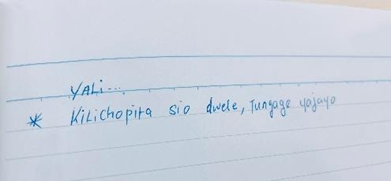 YALi...
* Kilichopita sio dwele, tungage yajayo